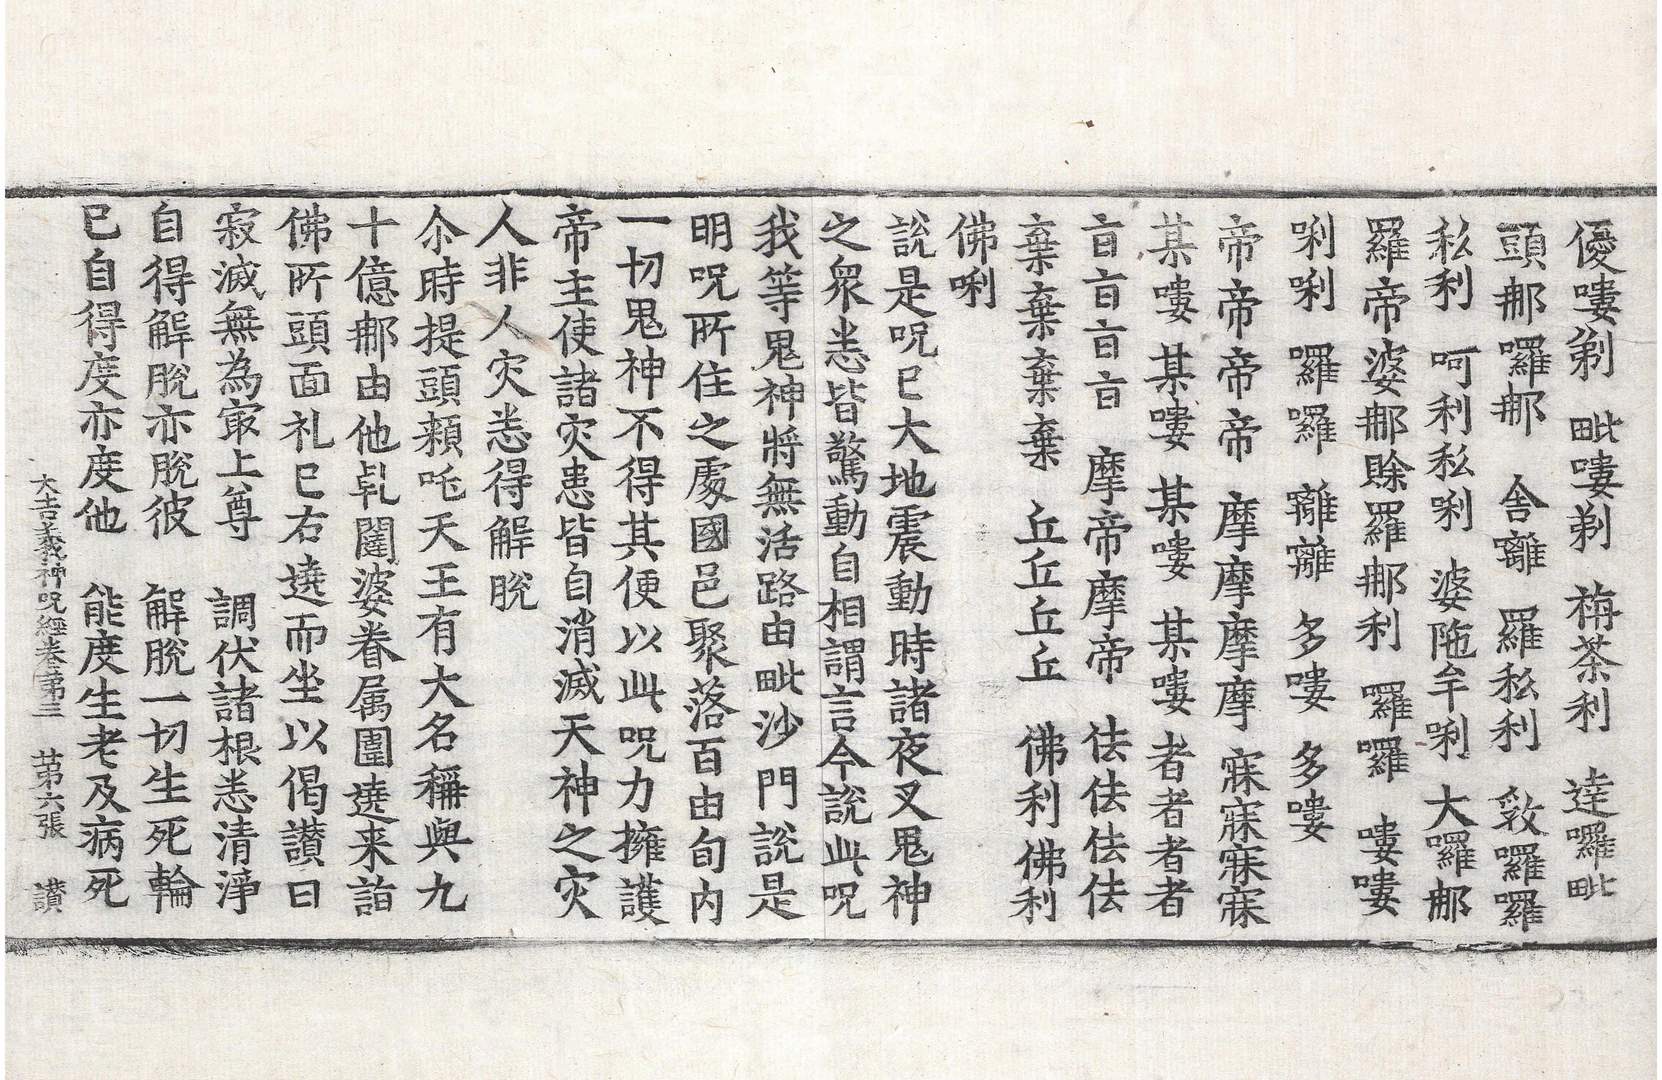 優嘍剃 毗嘍剃 栴荼利 達囉毗
頭那囉那 舎離 羅私利 敦囉囉
私利 呵利私唎 婆陁牟唎 大囉那
羅帝婆那賖羅那利 囉囉 嘍嘍
唎唎 囉囉 離離 多嘍 多嘍
帝帝帝帝 摩摩摩摩 寐寐寐寐
某嘍 某嘍 某嘍 某嘍 者者者者
盲盲盲盲 摩帝摩帝 佉佉佉佉
棄棄棄棄 丘丘丘丘 佛利佛利
佛唎
說是呪已大地震動時諸夜叉鬼神
之衆恙皆驚動自相謂言今說此呪
我等鬼神將無活路由毗沙門說是
明呪所住之處國邑聚落百由旬内
一切鬼神不得其便以此呪力擁護
帝主使諸灾患皆自消滅天神之灾
人非人灾恙得解脫
尒時提頭頼吒天王有大名稱與九
十億那由他乹闥婆眷属圍遶来詣
佛所頭面礼已右遶而坐以偈讃曰
寂滅無為㝡上尊 調伏諸根恙清淨
自得解脫亦脫彼 解脫一切生死輪
已自得度亦度他 能度生老及病死
大吉義神呪經卷第三 苐六張 讃